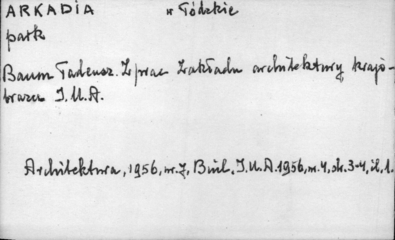 ARKADIA w Łódzkie
park
Baum Tadeusz. Z prac Zakładu architektury krajo-
brazu I.U.A.
Architektura, 1956, nr 7, Biul. I.U.A. 1956, nr 4, str. 3-4, il. 1.